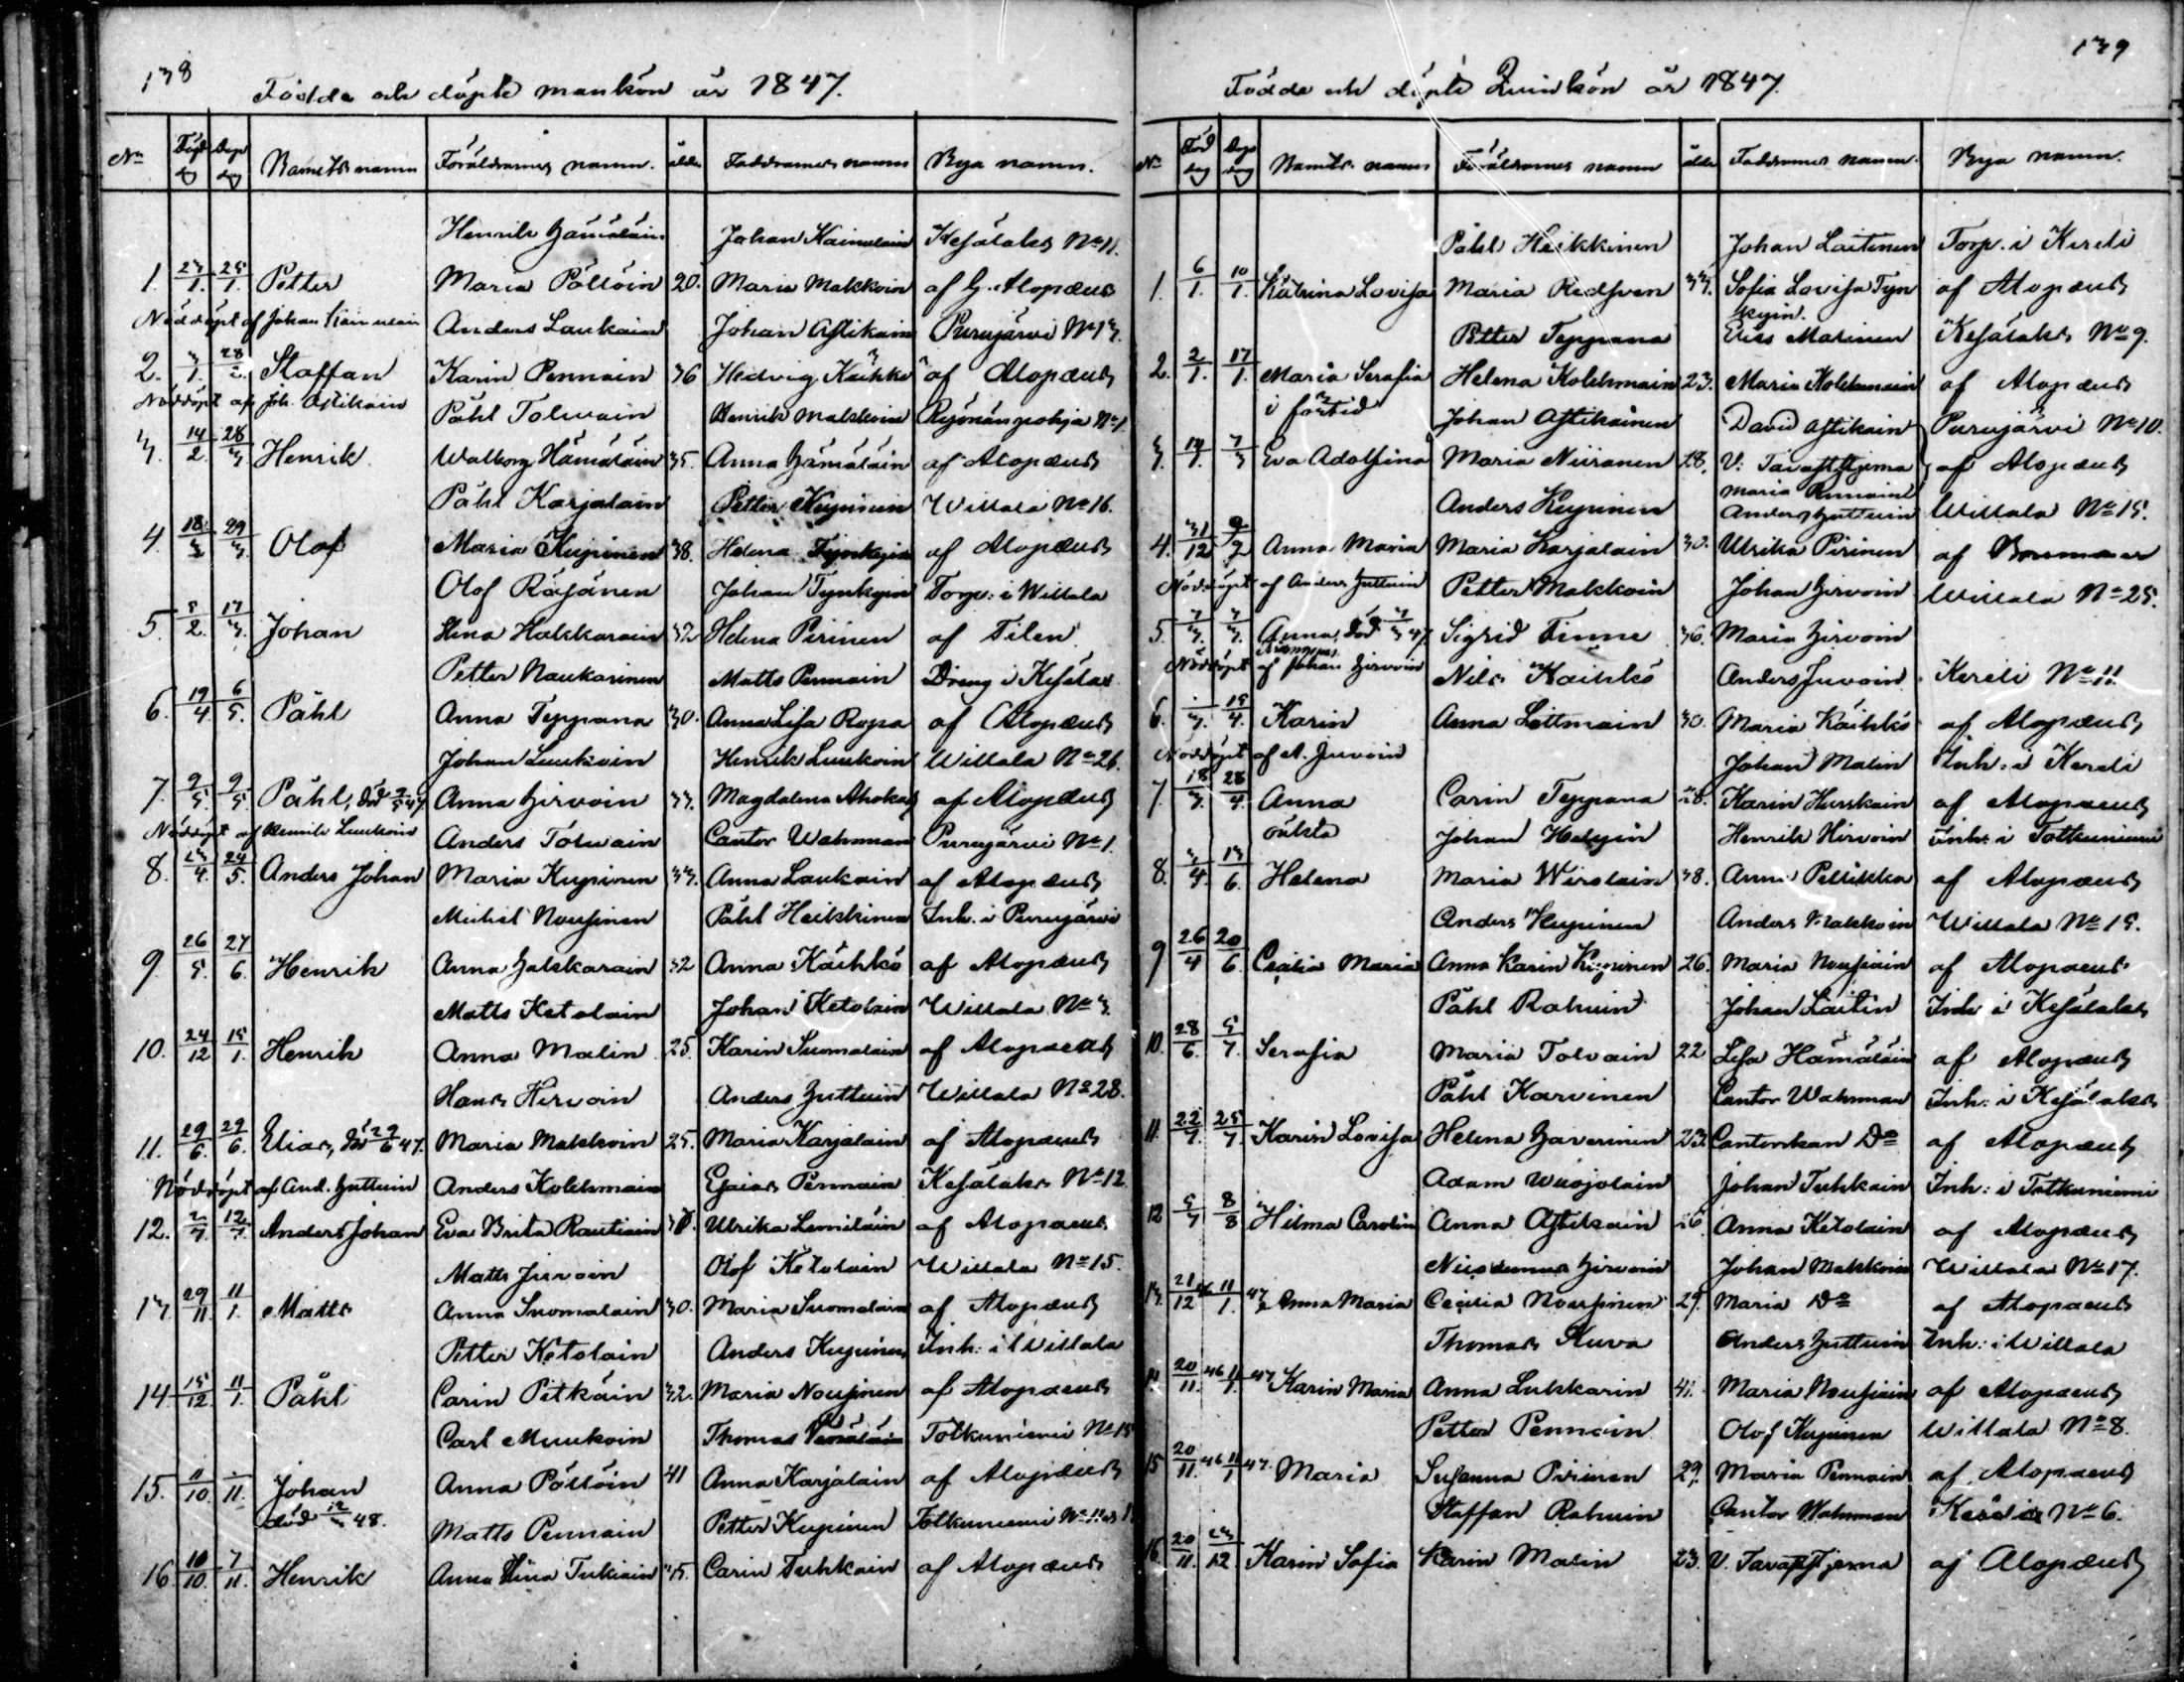 138
Födde och döpte mankön år 1847.
No Född dag Dop dag Barnets namn Föräldrarnes namn. ålder Faddrarnes namn Bya namn.
Henrik Hämäläin Johan Kainulain Kesälaks No 11.
1. 23/1. 25/1. Petter Maria Pöllöin 20. Maria Makkoin af G. Alopæus
Nöddöpt af Johan Kainulain Anders Laukain Johan Astikain Purujärvi No 13.
2. 3/1. 28/2. Staffan Karin Pennain 36 Hedvig Käihkö af Alopæus
Nöddöpt af Joh. Astikain Påhl Tolwain Henrik Makkoin Ryönänpohja No 1.
3. 14/2. 28/3. Henrik Walborg Hämäläin 35. Anna Hämäläin af Alopæus
Påhl Karjalain Petter Kupinen Willala No 16.
4. 18/3. 29/3. Olof Maria Kupinen 38. Helena Tynkyin af Alopæus
Olof Räsänen Johan Tynkyin Torp: i Willala
5. 5/2. 17/3. Johan Stina Hakkarain 32 Helena Pirinen af Tilen
Petter Naukarinen Matts Pennain Dreng i Kesälax
6. 19/4. 6/5. Påhl Anna Teppana 30. Anna Lisa Ropa af Alopæus
Johan Luukoin Henrik Luukoin Willala No 26.
7. 9/5. 9/5. Påhl, död 9/5 47 Anna Hirvoin 33. Magdalena Ahokas af Alopæus
Nöddöpt af Henrik Luukoin Anders Tolwain Cantor Wahrman Purujärvi No 1.
8. 23/4. 24/5. Anders Johan Maria Kupinen 33. Anna Laukain af Alopæus
Michel Nousinen Påhl Heikkinen Inh. i Purujärvi
9. 26/5. 27/6. Henrik Anna Hakkarain 32 Anna Käihkö af Alopæus
Matts Ketolain Johan Ketolain Willala No 3.
10. 24/12 15/1. Henrik Anna Malin 25. Karin Suomalain af Alopaeus
Hans Hirvoin Anders Huttuin Willala No 28.
11. 29/6. 29/6. Elias, död 29/6 47. Maria Makkoin 25. Maria Karjalain af Alopæus
Nöddöpt af And. Huttuin Anders Kolehmain Esaias Pennain Kesälaks No 12.
12. 2/7. 12/7. Anders Johan Eva Brita Rautiain Ulrika Lemiläin af Alopaeus
Matts Juvoin Olof Ketolain Willala No 15.
13. 29/11. 11/1. Matts Anna Suomalain 30. Maria Suomalain af Alopæus
Petter Ketolain Anders Kupinen Inh: i Willala
14. 15/12. 11/1. Påhl Carin Pitkäin 32. Maria Nousinen af Alopaeus
Carl Muukoin Thomas Totkuniemi No 15
15. 11/10. 11. Johan Anna Pöllöin 41 Anna Karjalain af Alopæus
död 48. Matts Pennain Petter Kupinen Totkuniemi No
16. 10/10. 7/11. Henrik Anna Stina Tukiain 45. Carin Tuhkain af Alopæus
139
Födde och döpte Quinkön år 1847.
No Född dag Dop dag Barnets namn Föräldrarnes namn ålder Faddrarnes namn. Bya namn.
Påhl Heikkinen Johan Laitinen Torp. i Kereli
1. 6/1. 10/1. Katrina Lovisa Maria Redsven 33. Sofia Lovisa Tyn af Alopæus
kyin.
Petter Teppana Elias Matinen Kesälaks No 9.
2. 2/1. 17/1. Maria Serafia Helena Kolehmain 23. Maria Kolehmain af Alopæus
i förtid Johan Astikainen David Astikain Purujärvi No 10.
3. 7/3 Eva Adolfina Maria Niiranen 28. V: Tavaststjerna af Alopæus
Maria Pennain
Anders Kupinen Anders Huttuin Willala No 15.
4. 31/12 9/2 Anna Maria Maria Karjalain 30. Ulrika Pirinen af
Nöddöpt af Anders Huttuin Petter Makkoin Johan Hirvoin Willala No 25.
5. 7/3. 7/3. Anna, död 7/3 47. Sigrid Tinne 36. Maria Hirvoin
Nöddöpt af Johan Hirvoin Nils Kaihko Anders Juvoin Kereli No 11.
6. 15/4. Karin Anna Lottmain 30. Maria Käihkö af Alopæus
Nöddöpt af A. Juvoin Johan Malin Inh: i Kereli
7. 18/3. 28/4. Anna Carin Teppana 28. Karin Hurskain af Alopaeus
oäkta Johan Halyin Henrik Hirvoin Inh: i Totkuniemi
8. 3/4. 13/6. Helena Maria Wirolain 38. Anna Pellikka af Alopæus
Anders Kupinen Anders Makkoin Willala No 15.
9 26/4 20/6. Cecilia Maria Anna Karin Kupinen 26. Maria Nousiain af Alopaeus
Påhl Rahuin Johan Laitin Inh: i Kesälaks
10. 28/6. 5/7. Serafia Maria Tolvain 22. Lisa Hämäläin af Alopæus
Påhl Karvinen Cantor Wahrman Inh: i Kesälaks
11. 22/7. 25/7. Karin Lovisa Helena Haverinen 23. Cantorskan Do af Alopæus
Adam Wuojolain Johan Tuhkain Inh: i Totkuniemi
12 5/7 8/8 Hilma Carolin Anna Astikain 26. Anna Ketolain af Alopæus
Nicodemus Hirvoin Johan Makkoin Willala No 17.
13. 21/12 46 11/1. 47 Anna Maria Cecilia Nousinen 29. Maria Do af Alopaeus
Thomas Kuva Anders Huttuin Inh: i Willala
14 20/11. 46 11/1. 47 Karin Maria Anna Lukkarin 41. Maria Nousiain af Alopaeus
Petter Pennain Olof Kupinen Willala No 8.
15 20/11. 46 11/1 47. Maria Susanna Pirinen 29. Maria Pennain af Alopaeus
Staffan Rahuin Cantor Wahrman No 6.
16 20/11. 23/12. Karin Sofia Karin Malin 23. V. Tavaststjerna af Alopæus